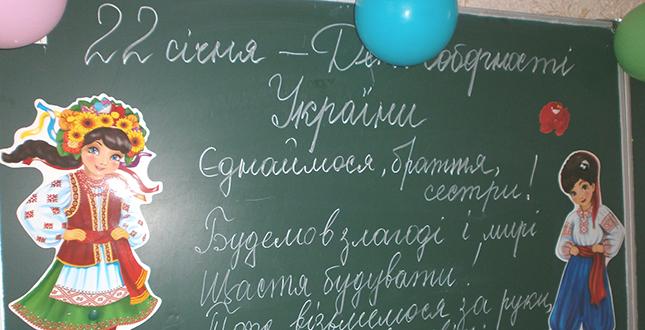 22 січня – День Соборності
України
Єднаймося, браття,
сестри!
Будемо в злагоді і мирі
Щастя будувати!
візьмемося за руки